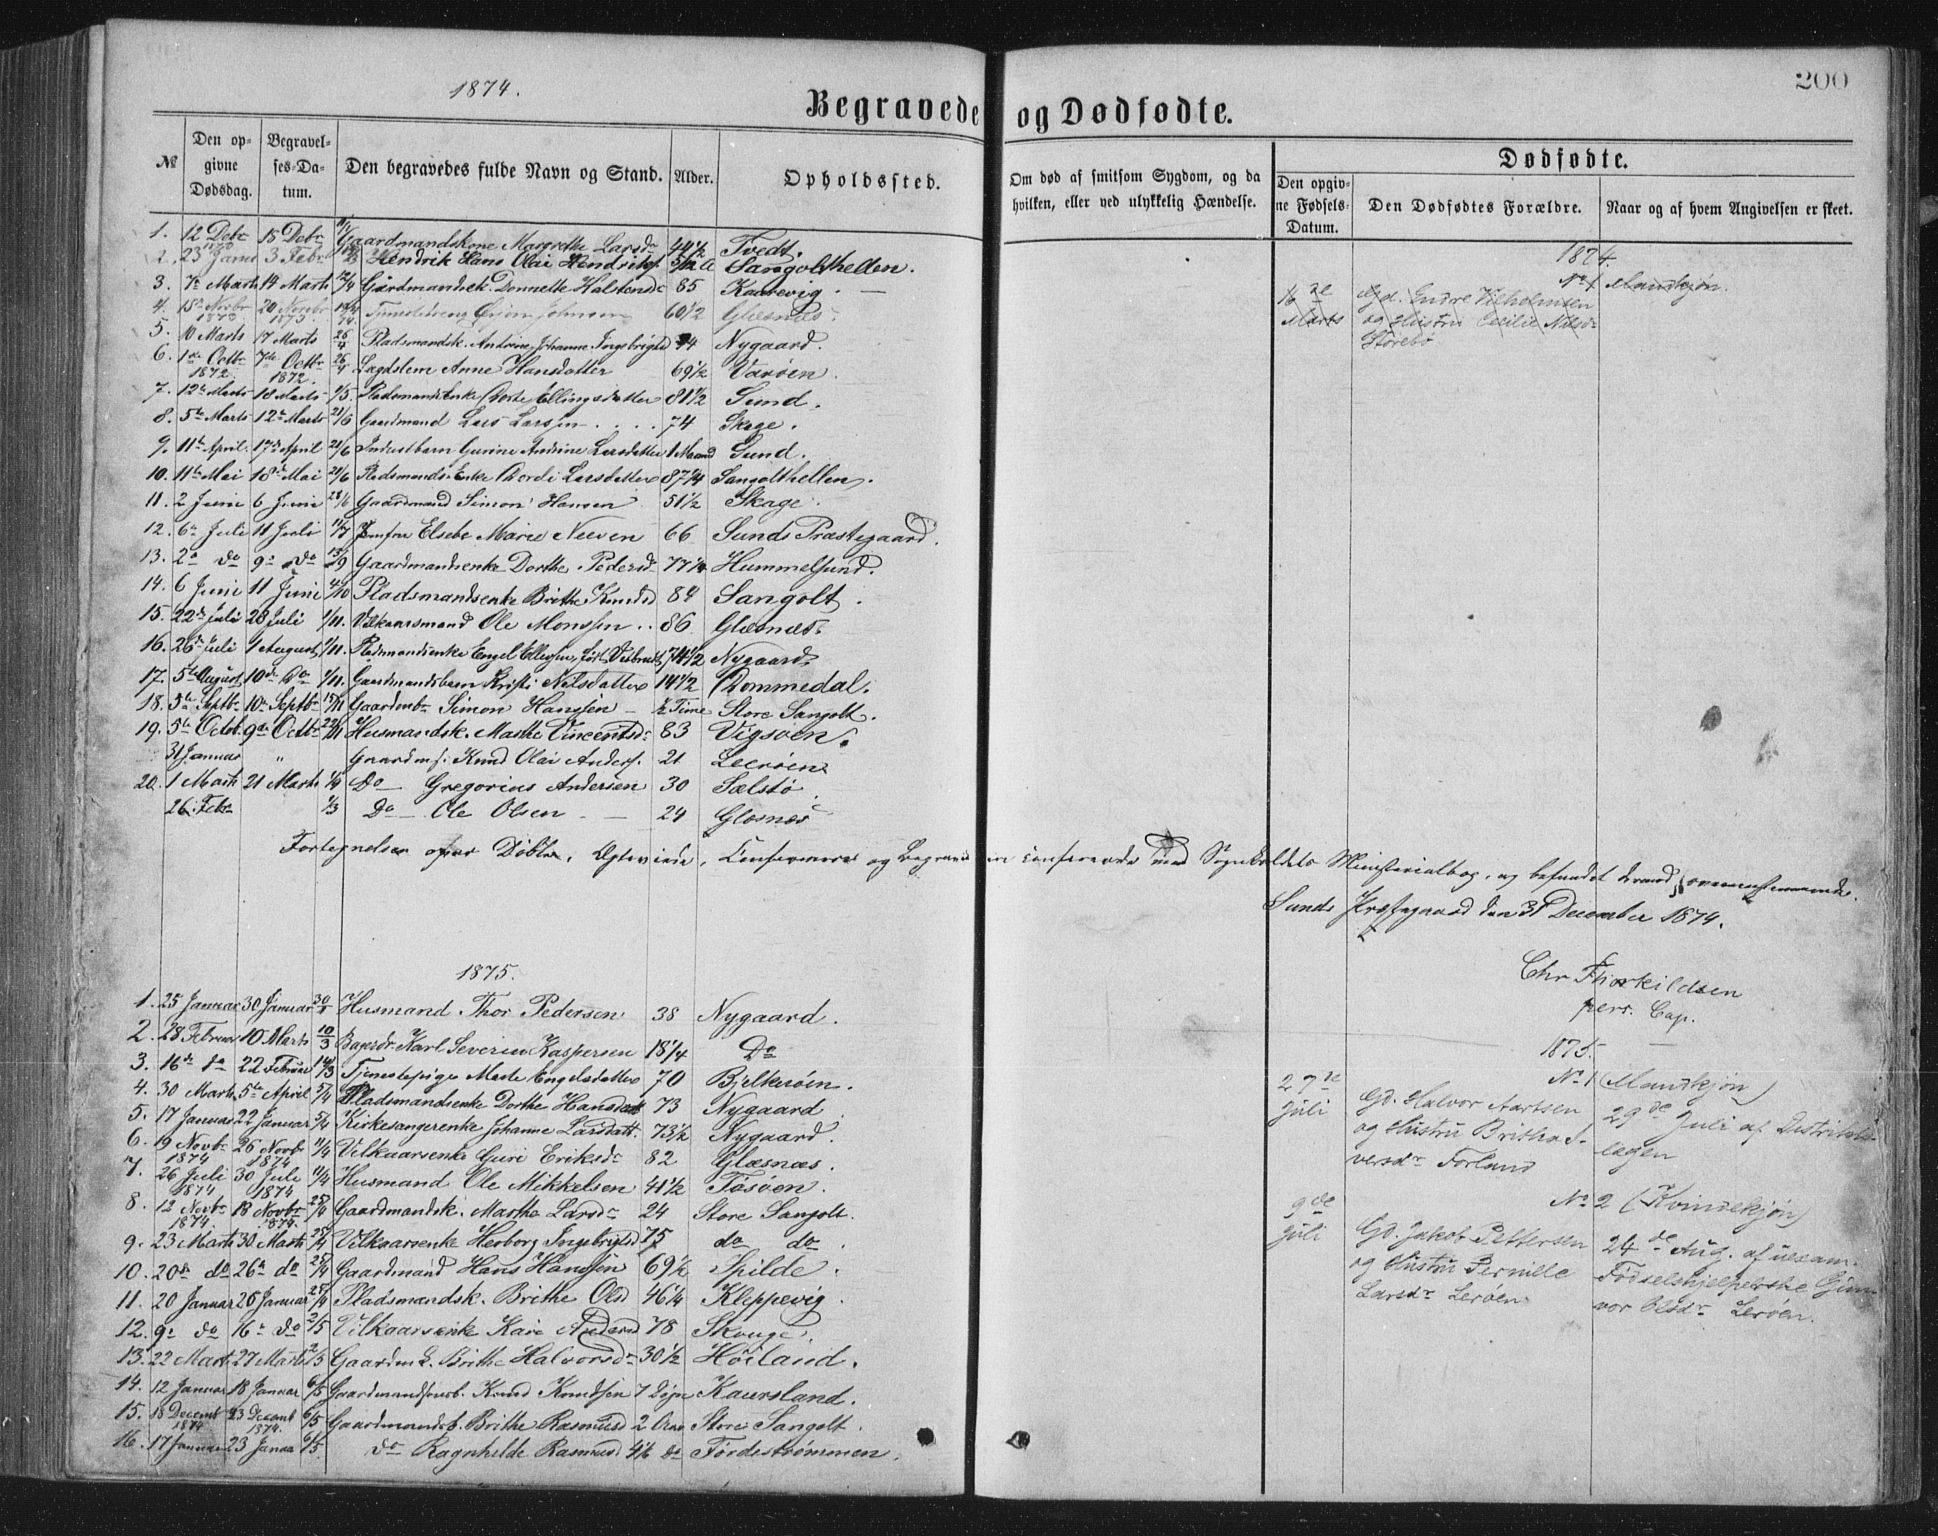 200
1874.
Begravede og Dødfødte.
№
Den opgivne Dødsdag.
Begravelses-Datum.
Den begravedes fulde Navn og Stand.
Alder.
Opholdssted.
Om død af smitsom Sygdom, og da hvilken, eller ved ulykkelig Hændelse.
Dødfødte.
Den opgivne Fødsels-Datum.
Den Dødfødtes Forældre.
Naar og af hvem Angivelsen er skeet.
1. 12 Debr 18 Debr Gaardmandskone Margrethe Larsdr 44½ Tvedt.
2. 23 Janr 3 Febr Hendrik Hans Olai Hendriks. Sangolthellen.
3. 7de Marts 14 Marts Halstensdr 85 Kaarevig.
4. 15de Novbr 20 Novbr 1873 Johnsen 60½ Glæsnæs.
5. 10 Marts 17 Marts 26/4 Pladsmandsk. Johanne Ingebrigtsd Nygaard.
6. 1de Octbr 1872 7de Octbr 1872. 26/4 Lægdslem Anne Hansdatter 69½ Varøen.
7. 12te Marts 18 Marts 1/5. Pladsmandsenke Ellingsdatter 81½ Sund.
8. 5te Marts 12te Marts 21/6 Gaardmand Lars Larssen 74 Skage.
9. 11te April. 17de April 21/6 Gurine Andrine Larsdatter 1 Maaned Sund.
10. 11te Mai 18de Mai 21/6 Pladsmands-Enke Larsdatter 87¼ Sangolthellen.
11. 2 Juni 6 Juni 28/6 Gaardmand Simon Hansen 51½ Skage.
12. 6te Juli 11 Juli 11/7 Jomfru Elsebe Marie Neeven 66 Sunds Præstegaard.
13. 2de do 9de do 13/9 Gaardmandsenke Dorthe Pedersd 77¼ Hummelsund.
14. 6 Juni 11 Juni 4/10 Pladsmandsenke Brithe Knudsd 84 Sangolt.
15. 22de Juli 28 Juli 1/11. Vilkaarsmand Ole Monssen 86 Glæsnæs.
16. 26de Juli 1 August 1/11. Pladsmandsenke Engel Ellingsen 74½ Nygaard.
17. 5te August 10de Do 1/11. Gaardmandsbarn Kristi Nilsdatter 14½ Tommedal.
18. 3de Septbr 10de Septbr 15/11 Gaardmbr Simon Hanssen ½ Time Store Sangolt.
19. 5te Octob. 9de Octbr 22/11 Husmandsk. Marthe Vincentsdr 83 Vigsøen.
31 Januar " Gaardms. Knud Olai Anders. 21 Leerøen
20. 1 Marts 21 Marts 1/4 Do Gregorius Andersen 30 Sælstø
26. Febr 1/3 Do Ole Olsen 24 Glæsnæs
1874.
No 1 Mandkjøn.
16de Marts
Gd. Endre Vilhelmsen
og Hustru Cecilie Nilsdr
Storebø
Fortegnelsen over Døbte, Ægteviede, Confirmerede og Begravede er confererede med Sognekaldets Ministerialbog, og befundet dermed overensstemmende.
Sunds Præstegaard den 31 December 1874.
Chr Thorkildsen
pers. Cap.
1875.
1. 25 Januar 30 Januar 30/1 Husmand Thor Pedersen 38 Nygaard.
2. 28 Februar 10 Marts 10/3 Karl Severin Kaspersen 18¼ Do
3. 16de do 22 Februar 14/3 Tjenestepige Marte Engelsdatter 70 Bjelkerøen.
4. 30 Marts 5te April 5/4 Pladsmandsenke Dorthe Hansdatt 73 Nygaard.
5. 17 Januar 22 Januar 5/4 Kirkesangerenke Johanne Larsdatt. 73½ Nygaard.
6. 19 Novbr 1874 26 Novbr 1874 11/4 Vilkaarsenke Guri Eriksdr 82 Glæsnæs.
7. 26 Juli 1874 30 Juli 1874 11/4 Husmand Ole Mikkelsen 41½ Tøsøen.
8. 12 Novbr 1874. 18 Novbr 1874. 25/4 Gaardmandsk. Marthe Larsdr 24 Store Sangolt.
9. 23 Marts 30 Marts 25/4 Vilkaarsenke Herborg Ingebrigtsd 75 do do.
10. 20de do 26de do 25/4 Gaardmand Hans Hanssen 69½ Spilde.
11. 20 Januar 26 Januar 25/4 Pladsmandsk. Brithe Olsd 46¼ Kleppevig.
12. 9de do 16de do 2/5 Vilkaarsenke Kari Andersd 78 Skouge.
13. 22 Mart 27 Marts 2/5 Gaardmk. Brithe Halvorsdr 30½ Høiland.
14. 12 Januar 18 Januar 6/5 Knud Knudsen 7 Døgn Kaursland.
15. 18 Decemb 1874 23 Decemb 1874. 6/5 Brithe Rasmusd 2 Store Sangolt.
16. 17 Januar 23 Janua 6/5. do Ragnhilde Rasmusd do Førdestrømmen.
1875.
No 1 (Mandkjøn)
27de Juli
Gd. Halvor Aartsen
og Hustru Britha I-
versdr Forland
29de Juli af Distrikts-
lægen
No 2 (Kvindekjøn)
9de Juli
Gd. Jakob Pettersen
og Hustru Pernille
Larsdr Lerøen
24de Aug. af uexam.
Fødselshjelperske Gun-
vor Olsdr Lerøen.